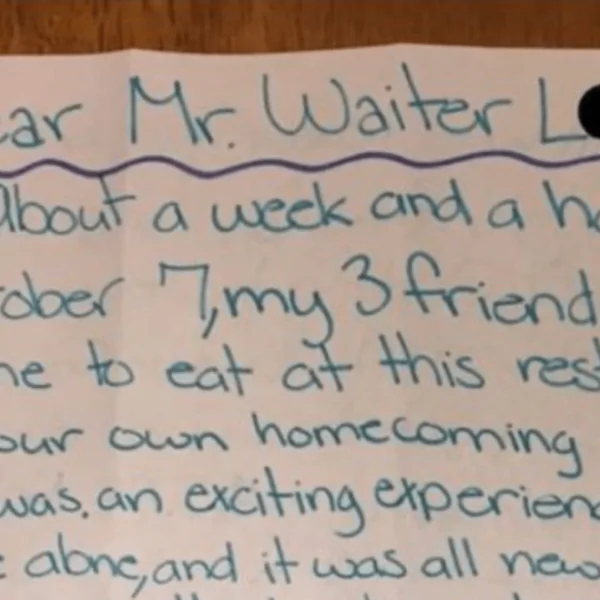 ear Mr. Waiter L
About a week and a ha
tober 7, my 3 friend
me to eat at this rest
our own homecoming
was. an exciting experienc
e abne, and it was all new